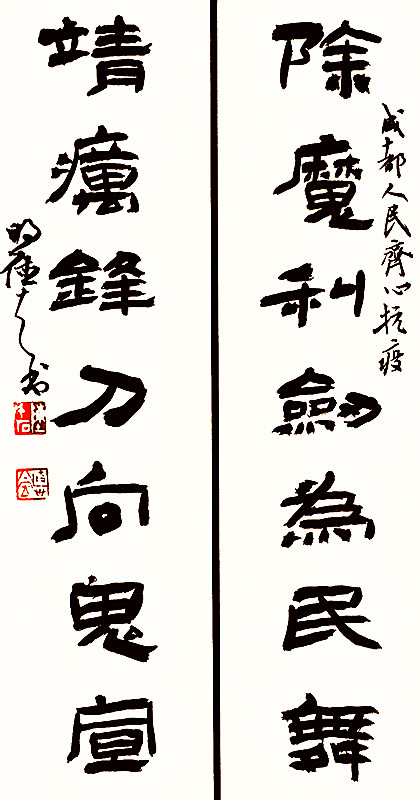 成都人民齊心抗疫
除魔利劍為民舞
靖癘鋒刀向鬼宣